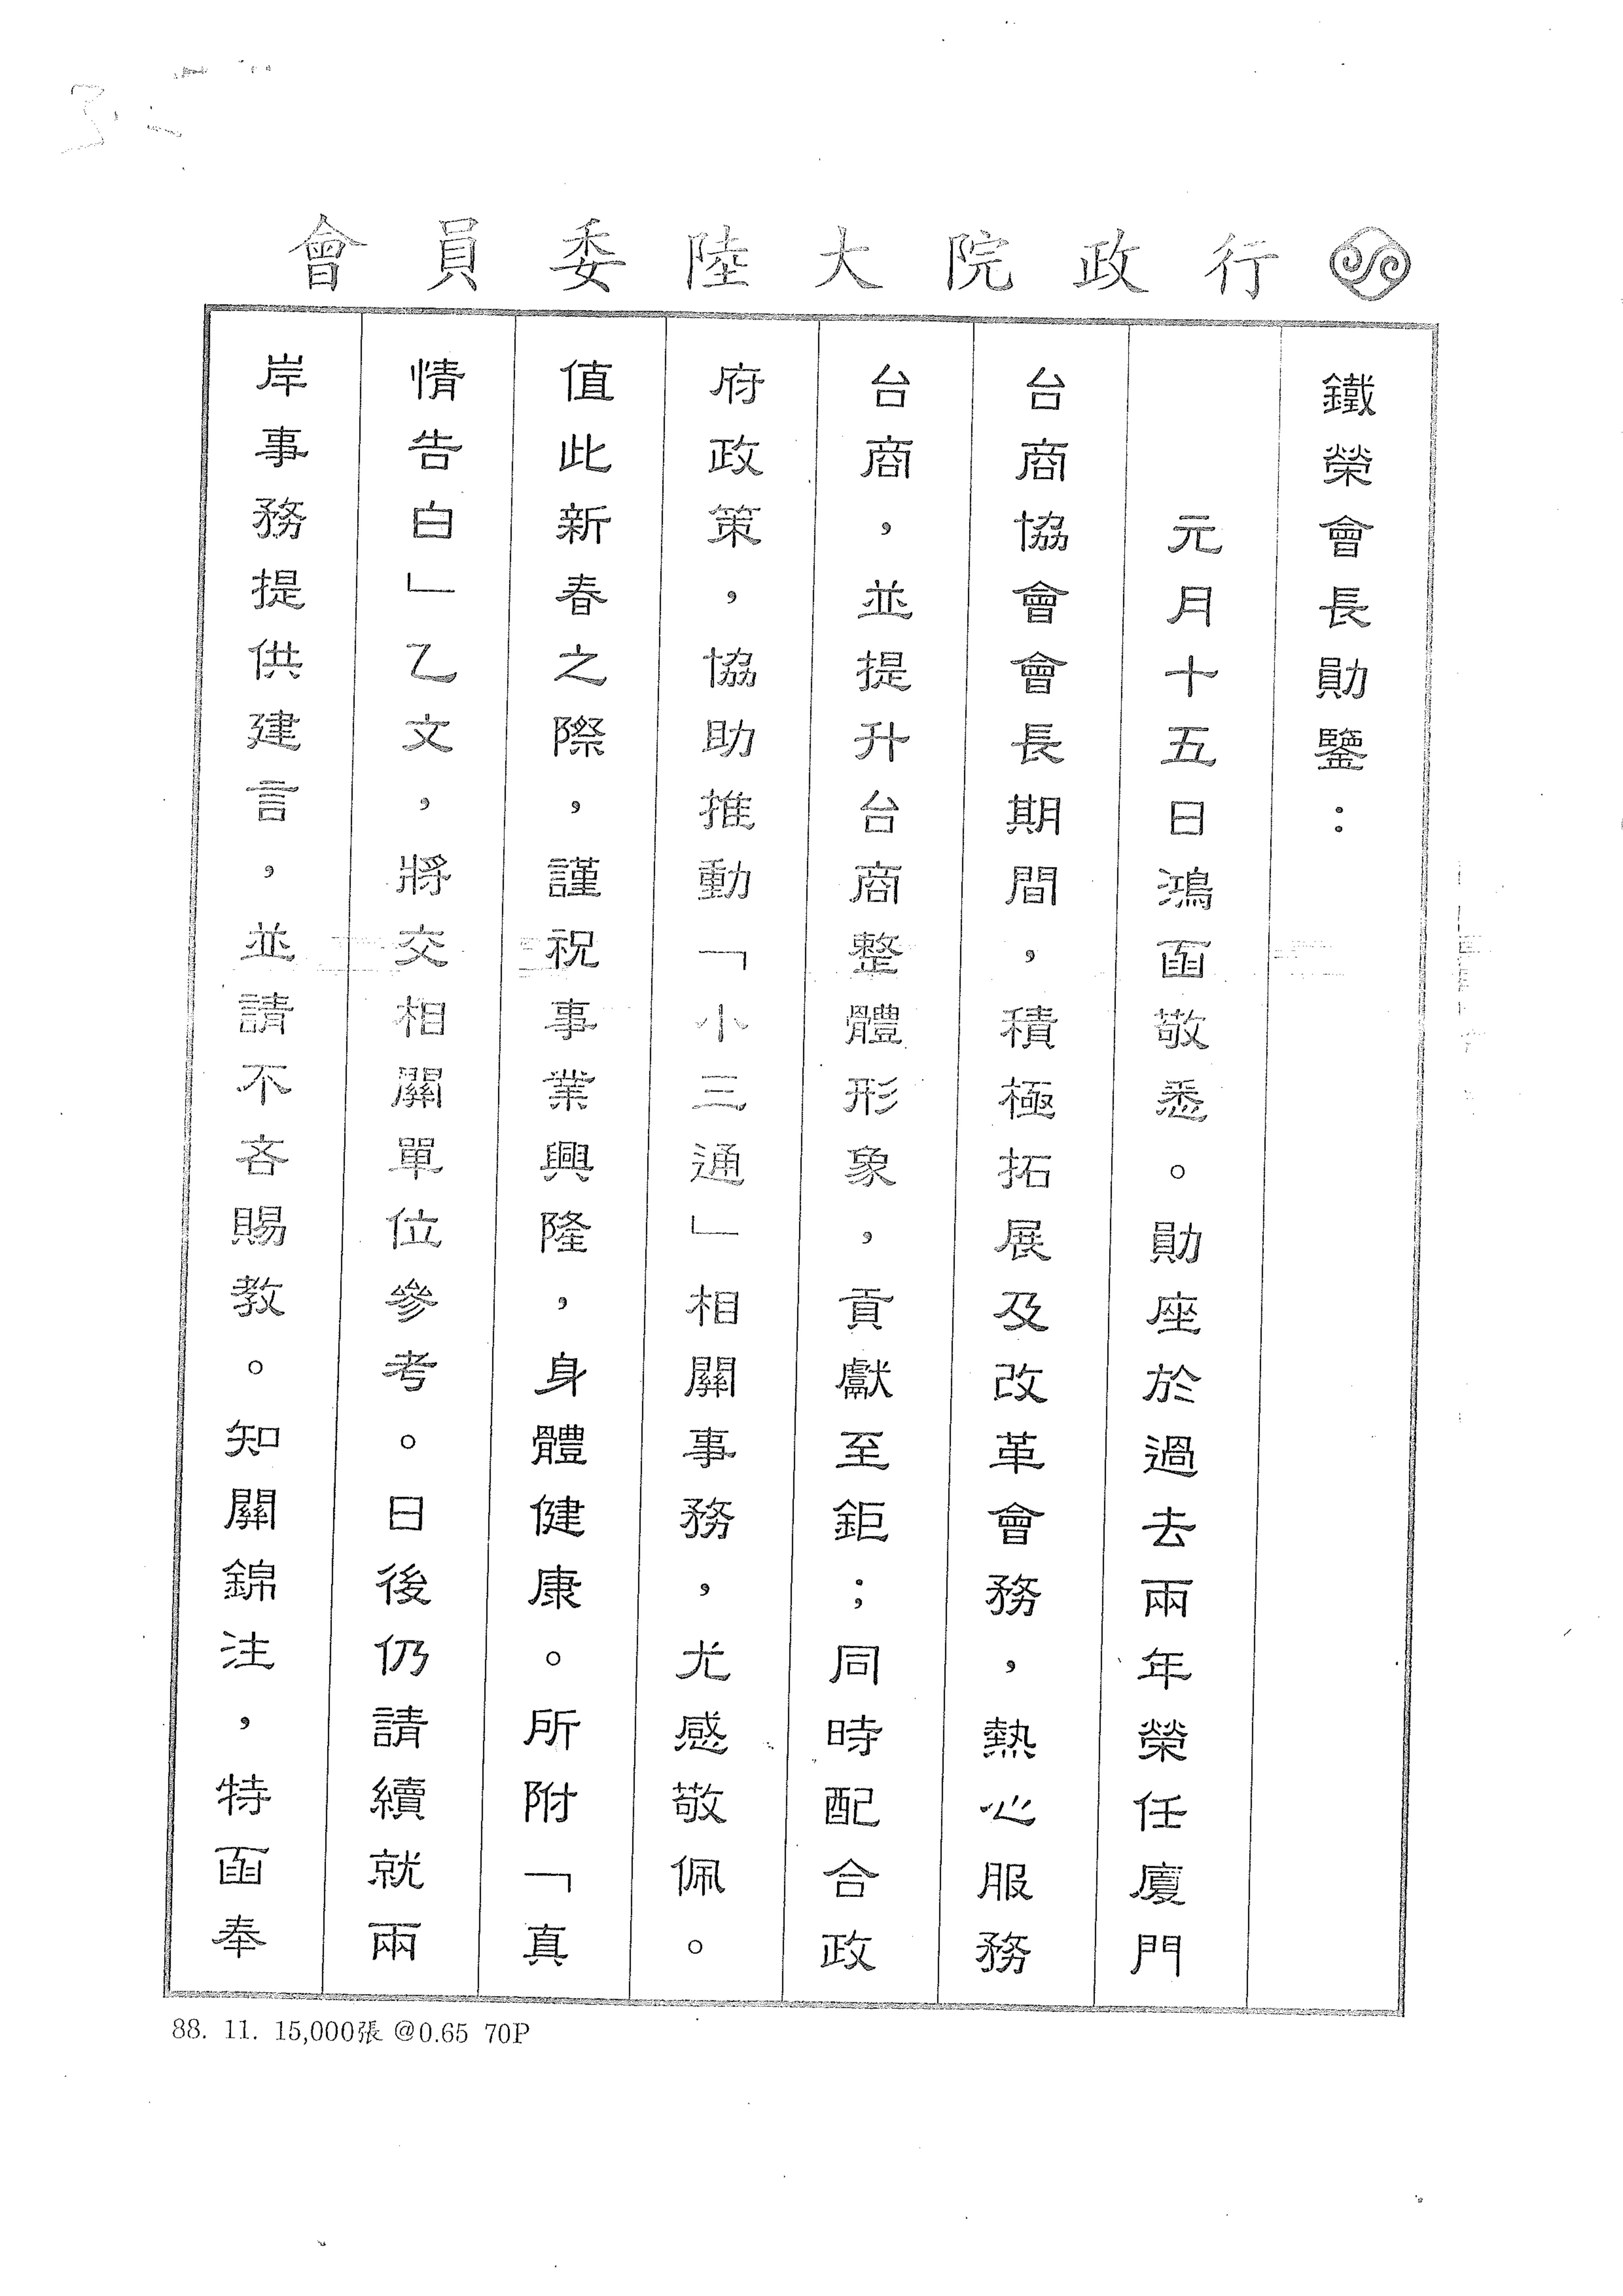 行政院大陸委員會
鐵榮會長勛鑒：
元月十五日鴻函敬悉。勛座於過去兩年榮任廈門
台商協會會長期間，積極拓展及改革會務，熱心服務
台商，並提升台商整體形象，貢獻至鉅；同時配合政
府政策，協助推動「小三通」相關事務，尤感敬佩。
值此新春之際，謹祝事業興隆，身體健康。所附「真
情告白」乙文，將交相關單位參考。日後仍請續就兩
岸事務提供建言，並請不吝賜教。知關錦注，特函奉
88. 11. 15,000張 @0.65 70P